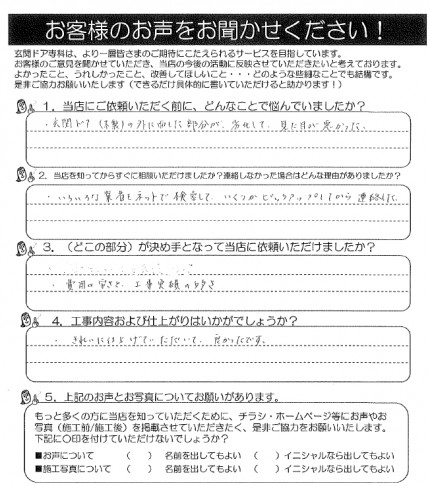 お客様のお声をお聞かせください！
玄関ドア専科は、より一層皆さまのご期待にこたえられるサービスを目指しています。
お客様のご意見を聞かせていただき、当店の今後の活動に反映させていただきたいと考えております。
よかったこと、うれしかったこと、改善してほしいこと・・・どのような些細なことでも結構です。
是非ご協力お願いいたします（できるだけ具体的に書いていただけると助かります！）
1．当店にご依頼いただく前に、どんなことで悩んでいましたか？
・玄関ドア（木製）の外に面した部分が、劣化して、見た目が悪かった。
2．当店を知ってからすぐに相談いただけましたか？連絡しなかった場合はどんな理由がありましたか？
・いろいろな業者をネットで検索して、いくつかピックアップしてから連絡した。
3．（どこの部分）が決め手となって当店に依頼いただけましたか？
・費用の安さと、工事実績の多さ
4．工事内容および仕上がりはいかがでしょうか？
・きれいに仕上げていただいて、良かったです。
5．上記のお声とお写真についてお願いがあります。
もっと多くの方に当店を知っていただくために、チラシ・ホームページ等にお声やお
写真（施工前/施工後）を掲載させていただきたく、是非ご協力をお願いいたします。
下記に〇印を付けていただけないでしょうか？
■お声について （ ） 名前を出してもよい （ ）イニシャルなら出してもよい
■施工写真について （ ） 名前を出してもよい （ ）イニシャルなら出してもよい